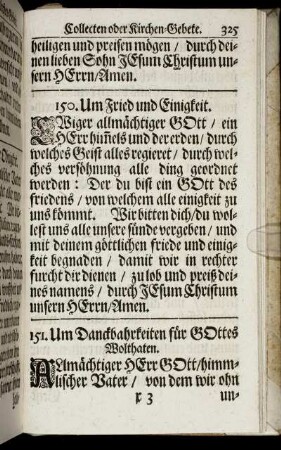 Collecten oder Kirchen-Gebete. 325
heiligen und preisen mögen / durch dei-
nen lieben Sohn JEsum Christum un-
sern HErrn/Amen.
150. Um Fried und Einigkeit.
EWiger allmächtiger GOtt / ein
HErr him̃els und der erden/ durch
welches Geist alles regieret / durch wel-
ches versöhnung alle ding geordnet
werden : Der du bist ein GOtt des
friedens / von welchem alle einigkeit zu
uns kömmt. Wir bitten dich/du wol-
lest uns alle unsere sünde vergeben / und
mit deinem göttlichen friede und einig-
keit begnaden / damit wir in rechter
furcht dir dienen / zu lob und preiß dei-
nes namens / durch JEsum Christum
unsern HErrn/Amen.
151. Um Danckbahrkeiten für GOttes
Wolthaten.
ALmächtiger HErr GOtt/himm-
lischer Vater / von dem wir ohn
r 3 un-